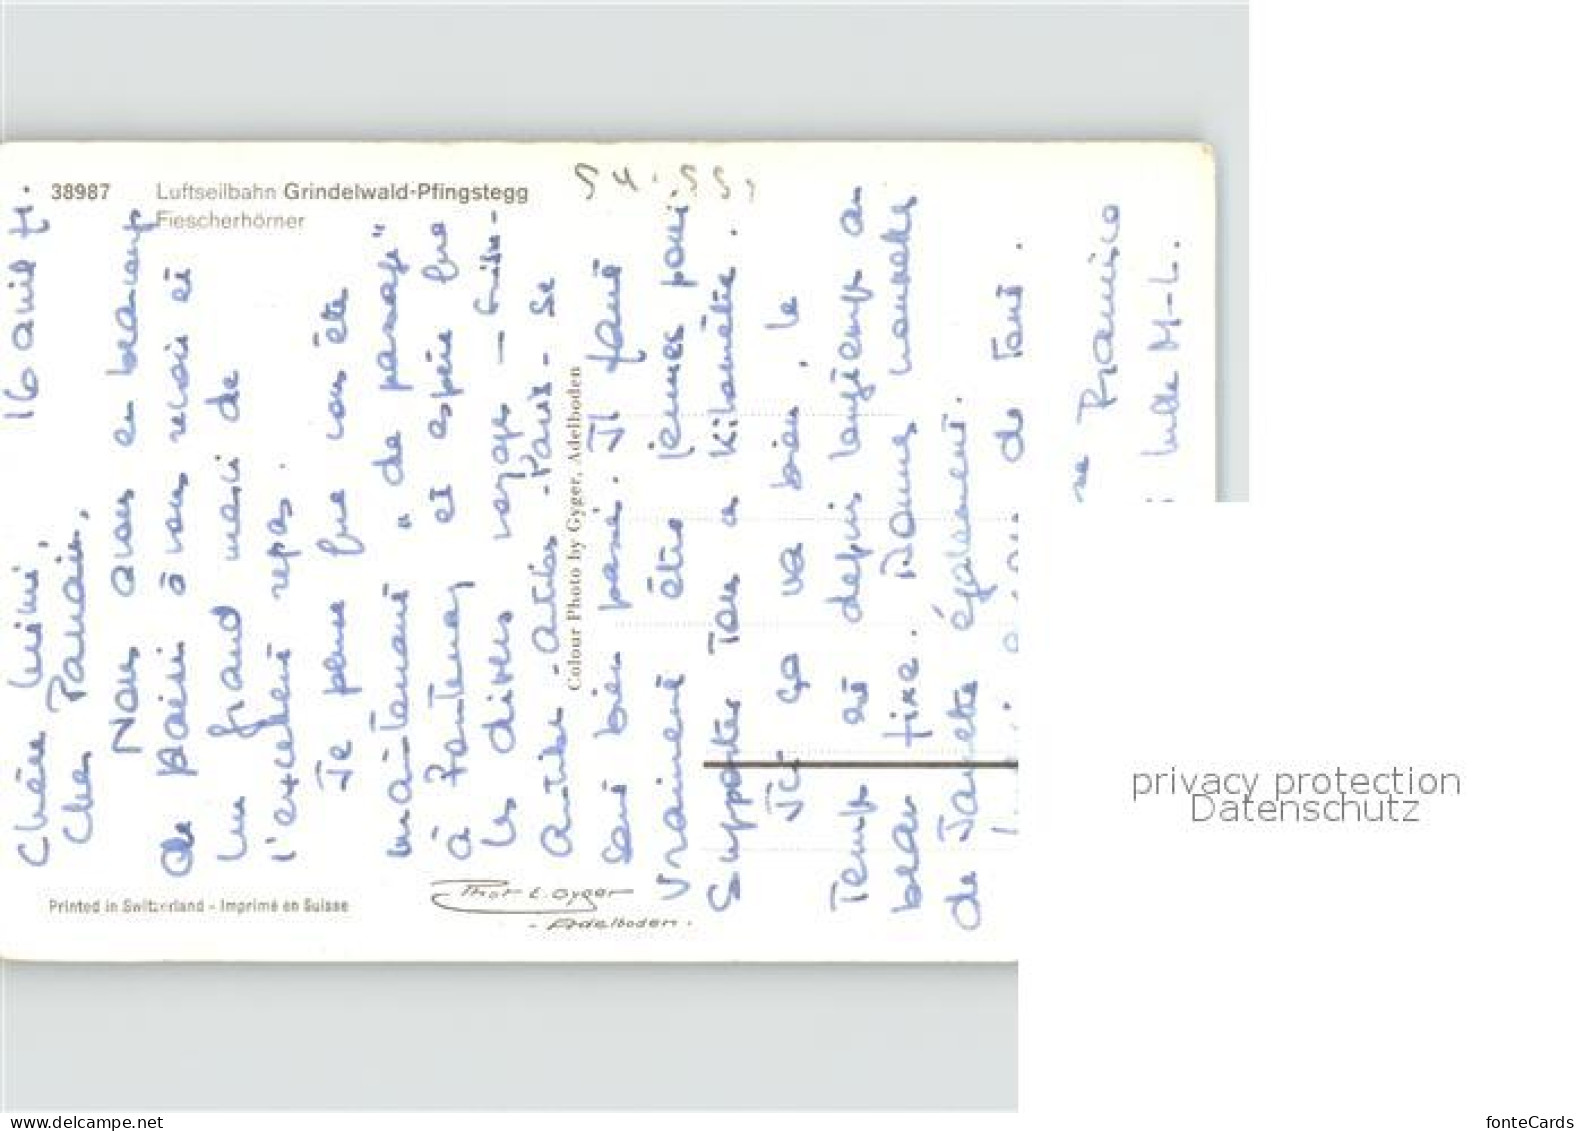 38987 Luftseilbahn Grindelwald-Pfingstegg
Fiescherhörner
54.555
16 avril 71.
Chère Mimi,
Cher Parrain,
Nous avons eu beaucoup
de plaisir à vous revoir et
un grand merci de
l'excellent repas.
Je pense que vous êtes
maintenant "de passage"
à Fontenay et espère que
les divers voyages -
Antibes - Paris - se
sont bien passés. Il faut
vraiment être jeunes pour
supporter tous ces kilomètres.
Ici ça va bien, le
temps est depuis longtemps au
beau fixe. Bonnes nouvelles
de également.
de tout.
Francisco
M-L.
Colour Photo by Gyger, Adelboden
Printed in Switzerland - Imprimé en Suisse
Phot E. Gyger
- Adelboden -
privacy protection
Datenschutz
www.delcampe.net
fonteCards